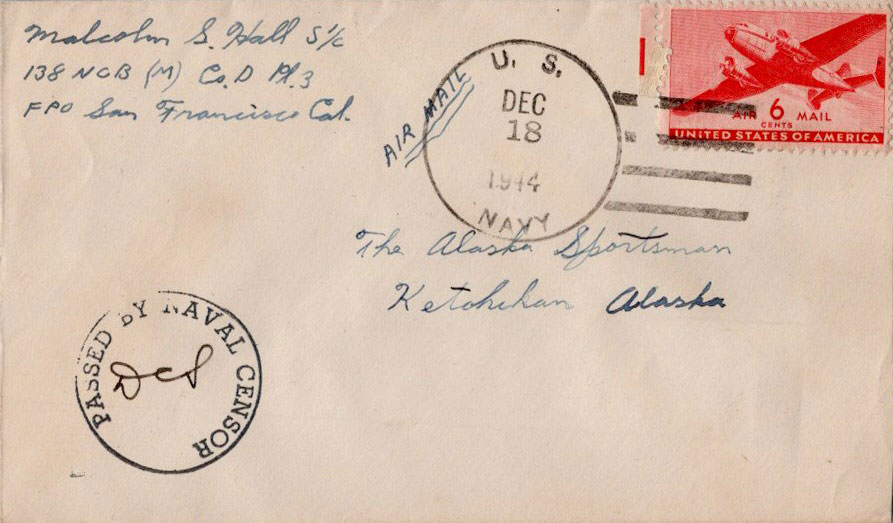 Malcolm S. Hall S1/c
138 NCB (M) Co. D Pl. 3
FPO San Francisco Cal.
AIR MAIL
U. S.
DEC
18
1944
NAVY
AIR 6 MAIL
CENTS
UNITED STATES OF AMERICA
The Alaska Sportsman
Ketchikan Alaska
PASSED BY NAVAL CENSOR
DCS